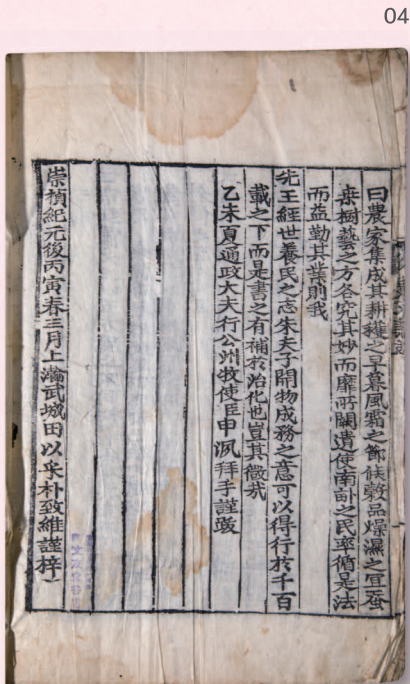 04
曰農家集成其耕穫之早暮風霜之節候穀品燥濕之宜蚕
桒樹藝之方各究其妙而靡所闕遺使南畝之民率循是法
而益勤其業則我
先王經世養民之志朱夫子開物成務之意可以得行於千百
載之下而是書之有補於治化也豈其微哉
乙未夏通政大夫行公州牧使臣申洬拜手謹跋
崇禎紀元後丙寅春三月上澣武城田以采朴致維謹梓